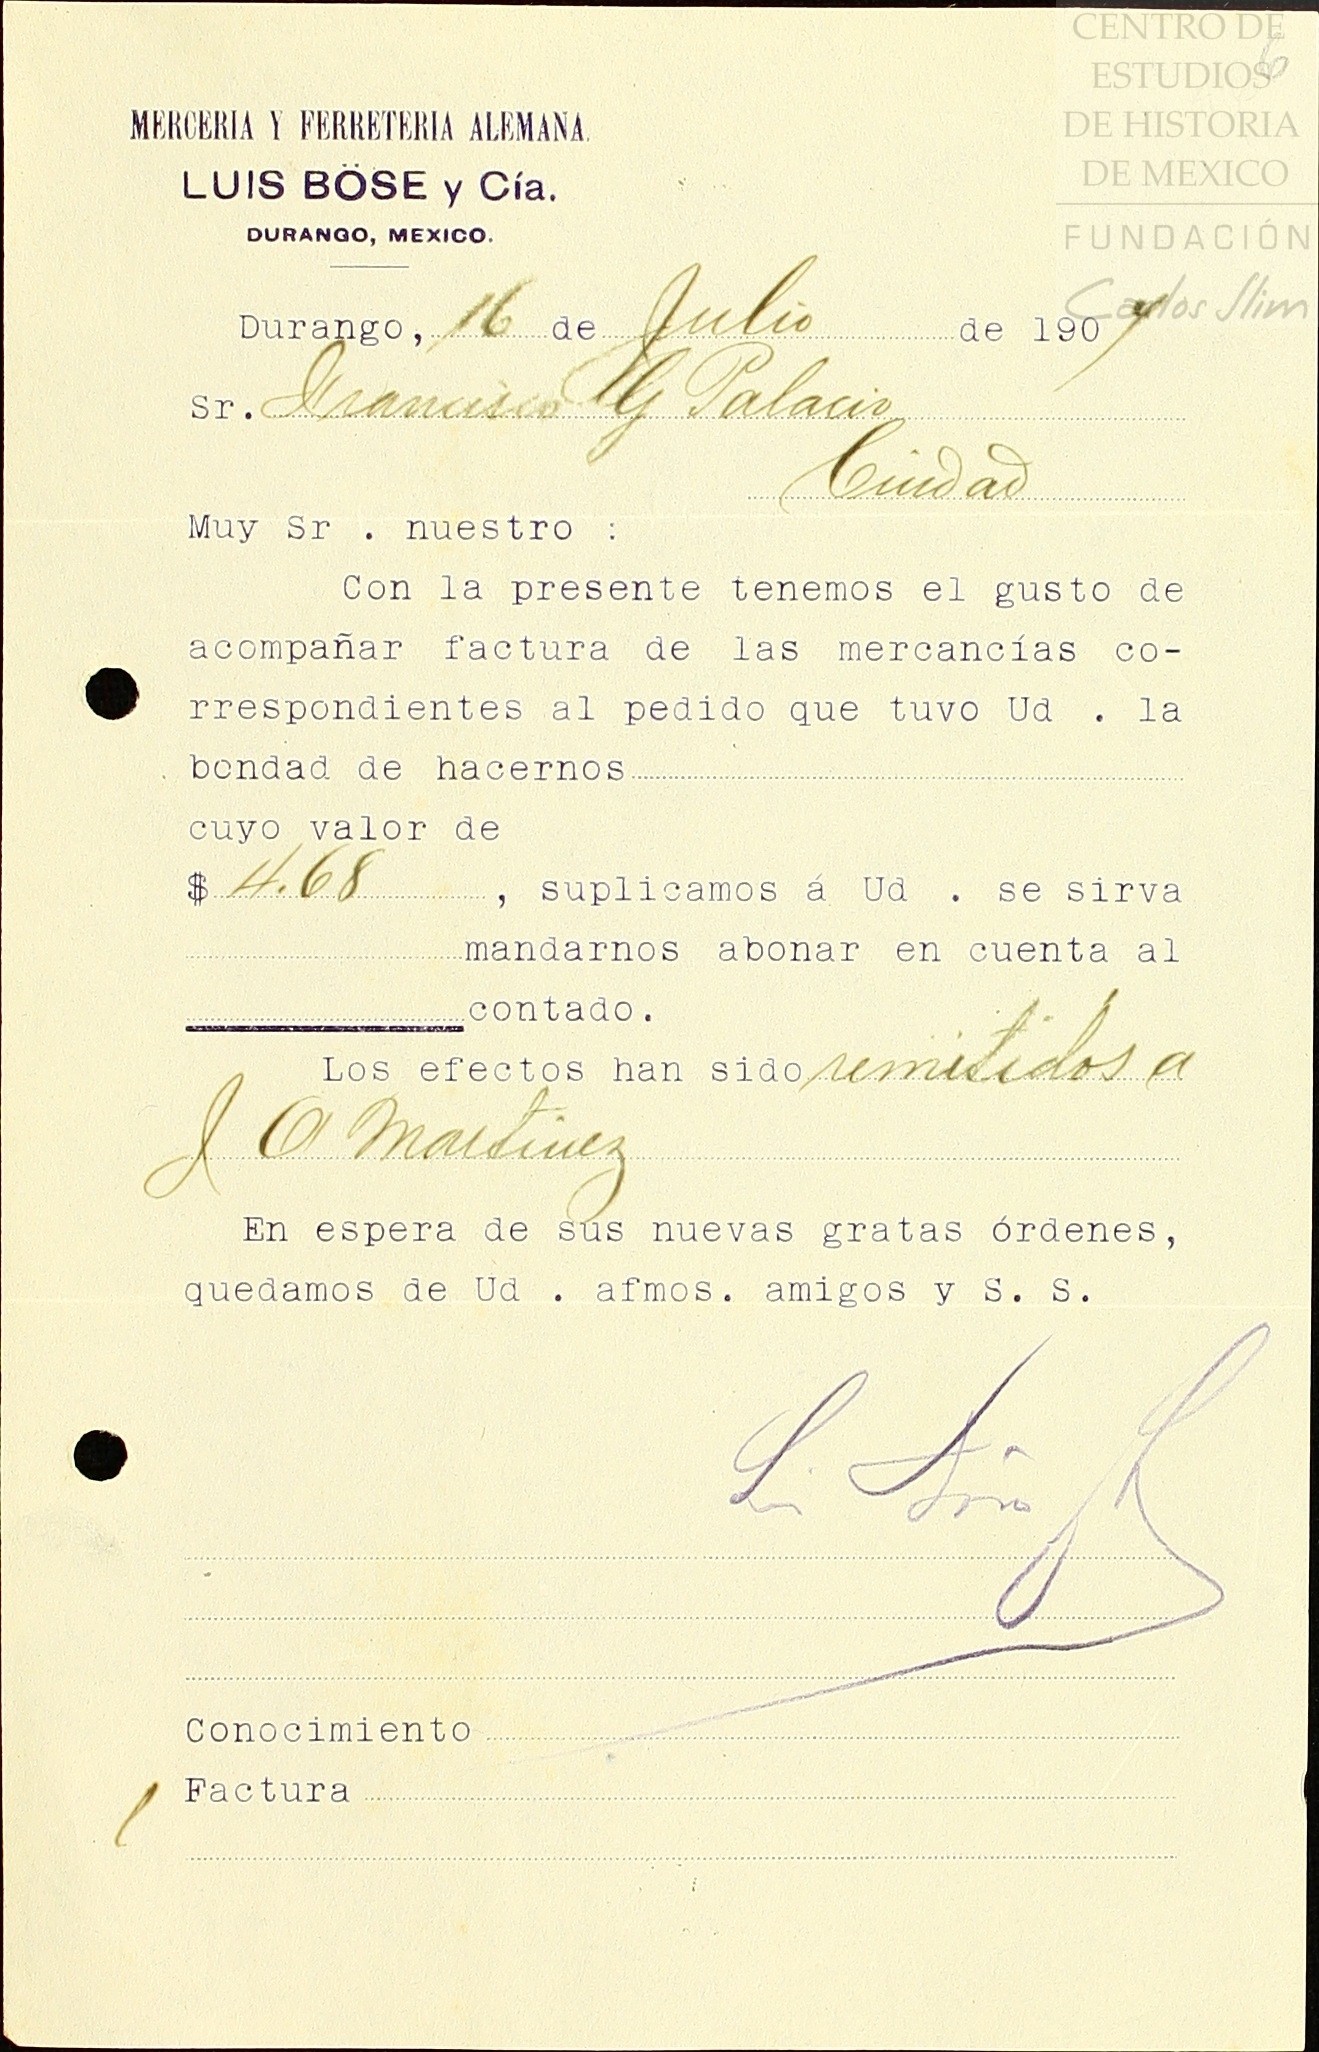 CENTRO DE
ESTUDIOS
DE HISTORIA
DE MEXICO
FUNDACIÓN
Carlos Slim
6
MERCERIA Y FERRETERIA ALEMANA.
LUIS BÖSE y Cía.
DURANGO, MEXICO.
Durango, 16 de Julio de 1907
Sr. Francisco G Palacio
Ciudad
Muy Sr . nuestro :
Con la presente tenemos el gusto de
acompañar factura de las mercancías co-
rrespondientes al pedido que tuvo Ud . la
bondad de hacernos
cuyo valor de
$ 4.68 , suplicamos á Ud . se sirva
mandarnos abonar en cuenta al
contado.
Los efectos han sido remitidos a
J A Martinez
En espera de sus nuevas gratas órdenes,
quedamos de Ud . afmos. amigos y S. S.
Conocimiento
1 Factura